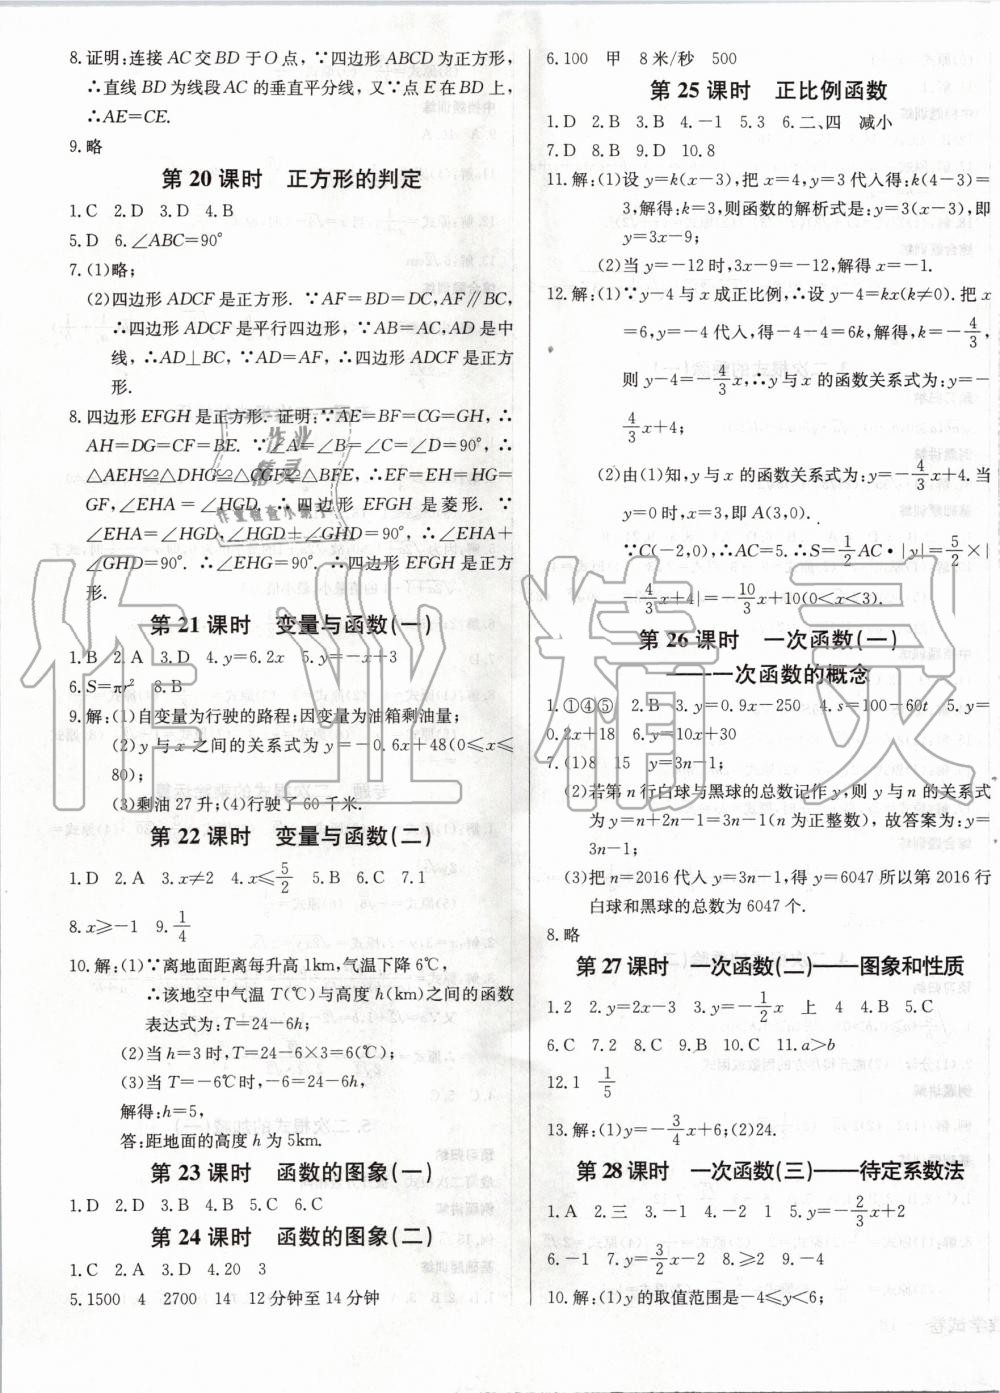 8.证明:连接AC交BD于O点,∵四边形ABCD为正方形,
∴直线BD为线段AC的垂直平分线,又∵点E在BD上,
∴AE=CE.
9.略
第20课时 正方形的判定
1.C 2.D 3.D 4.B
5.D 6.∠ABC=90°
7.(1)略;
(2)四边形ADCF是正方形. ∵AF=BD=DC,AF∥BC,
∴四边形ADCF是平行四边形,∵AB=AC,AD是中
线,∴AD⊥BC,∵AD=AF,∴四边形ADCF是正方
形.
8.四边形EFGH是正方形. 证明:∵AE=BF=CG=GH,∴
AH=DG=CF=BE. ∵∠A=∠B=∠C=∠D=90°,∴
△AEH≌△DHG≌△CGF≌△BFE,∴EF=EH=HG=
GF,∠EHA=∠HGD,∴四边形EFGH是菱形. ∵
∠EHA=∠HGD,∠HGD+∠GHD=90°,∴∠EHA+
∠GHD=90°. ∴∠EHG=90°. ∴四边形EFGH是正方
形.
第21课时 变量与函数(一)
1.B 2.A 3.D 4.y=6.2x 5.y=-x+3
6.S=πr² 8.B
9.解:(1)自变量为行驶的路程;因变量为油箱剩油量;
(2)y与x之间的关系式为y=-0.6x+48(0≤x≤
80);
(3)剩油27升;(4)行驶了60千米.
第22课时 变量与函数(二)
1.D 2.A 3.x≠2 4.x≤5/2 5.B 6.C 7.1
8.x≥-1 9.1/4
10.解:(1)∵离地面距离每升高1km,气温下降6℃,
∴该地空中气温T(℃)与高度h(km)之间的函数
表达式为:T=24-6h;
(2)当h=3时,T=24-6×3=6(℃);
(3)当T=-6℃时,-6=24-6h,
解得:h=5,
答:距地面的高度h为5km.
第23课时 函数的图象(一)
1.D 2.D 3.B 4.C 5.B 6.C
第24课时 函数的图象(二)
1.C 2.A 3.D 4.20 3
5.1500 4 2700 14 12分钟至14分钟
6.100 甲 8米/秒 500
第25课时 正比例函数
1.D 2.B 3.B 4.-1 5.3 6.二、四 减小
7.D 8.B 9.D 10.8
11.解:(1)设y=k(x-3),把x=4,y=3代入得:k(4-3)=
3,解得:k=3,则函数的解析式是:y=3(x-3),即
y=3x-9;
(2)当y=-12时,3x-9=-12,解得x=-1.
12.解:(1)∵y-4与x成正比例,∴设y-4=kx(k≠0). 把x
=6,y=-4代入,得-4-4=6k,解得,k=-4/3,
则y-4=-4/3x,∴y与x的函数关系式为:y=-
4/3x+4;
(2)由(1)知,y与x的函数关系式为:y=-4/3x+4. 当
y=0时,x=3,即A(3,0).
∵C(-2,0),∴AC=5.∴S=1/2AC·|y|=5/2×|
-4/3x+4|=-10/3x+10(0<x<3).
第26课时 一次函数(一)
——一次函数的概念
1.①④⑤ 2.B 3.y=0.9x-250 4.s=100-60t 5.y=
0.2x+18 6.y=10x+30
7.(1)8 15 y=3n-1;
(2)若第n行白球与黑球的总数记作y,则y与n的关系式
为y=n+2n-1=3n-1(n为正整数),故答案为:y=
3n-1;
(3)把n=2016代入y=3n-1,得y=6047所以第2016行
白球和黑球的总数为6047个.
8.略
第27课时 一次函数(二)——图象和性质
1.2 2.y=2x-3 3.y=-1/2x 上 4 4.B 5.C
6.C 7.2 8.C 9.B 10.C 11.a>b
12.1 1/5
13.解:(1)y=-3/4x+6;(2)24.
第28课时 一次函数(三)——待定系数法
1.A 2.三 3.-1 4.-2 1 5.y=-2/3x+2
6.-1 7.y=3/2x-2 8.≥2 9.-4
10.解:(1)y的取值范围是-4≤y<6;
作业精灵
作业
精灵
作业检查小助手